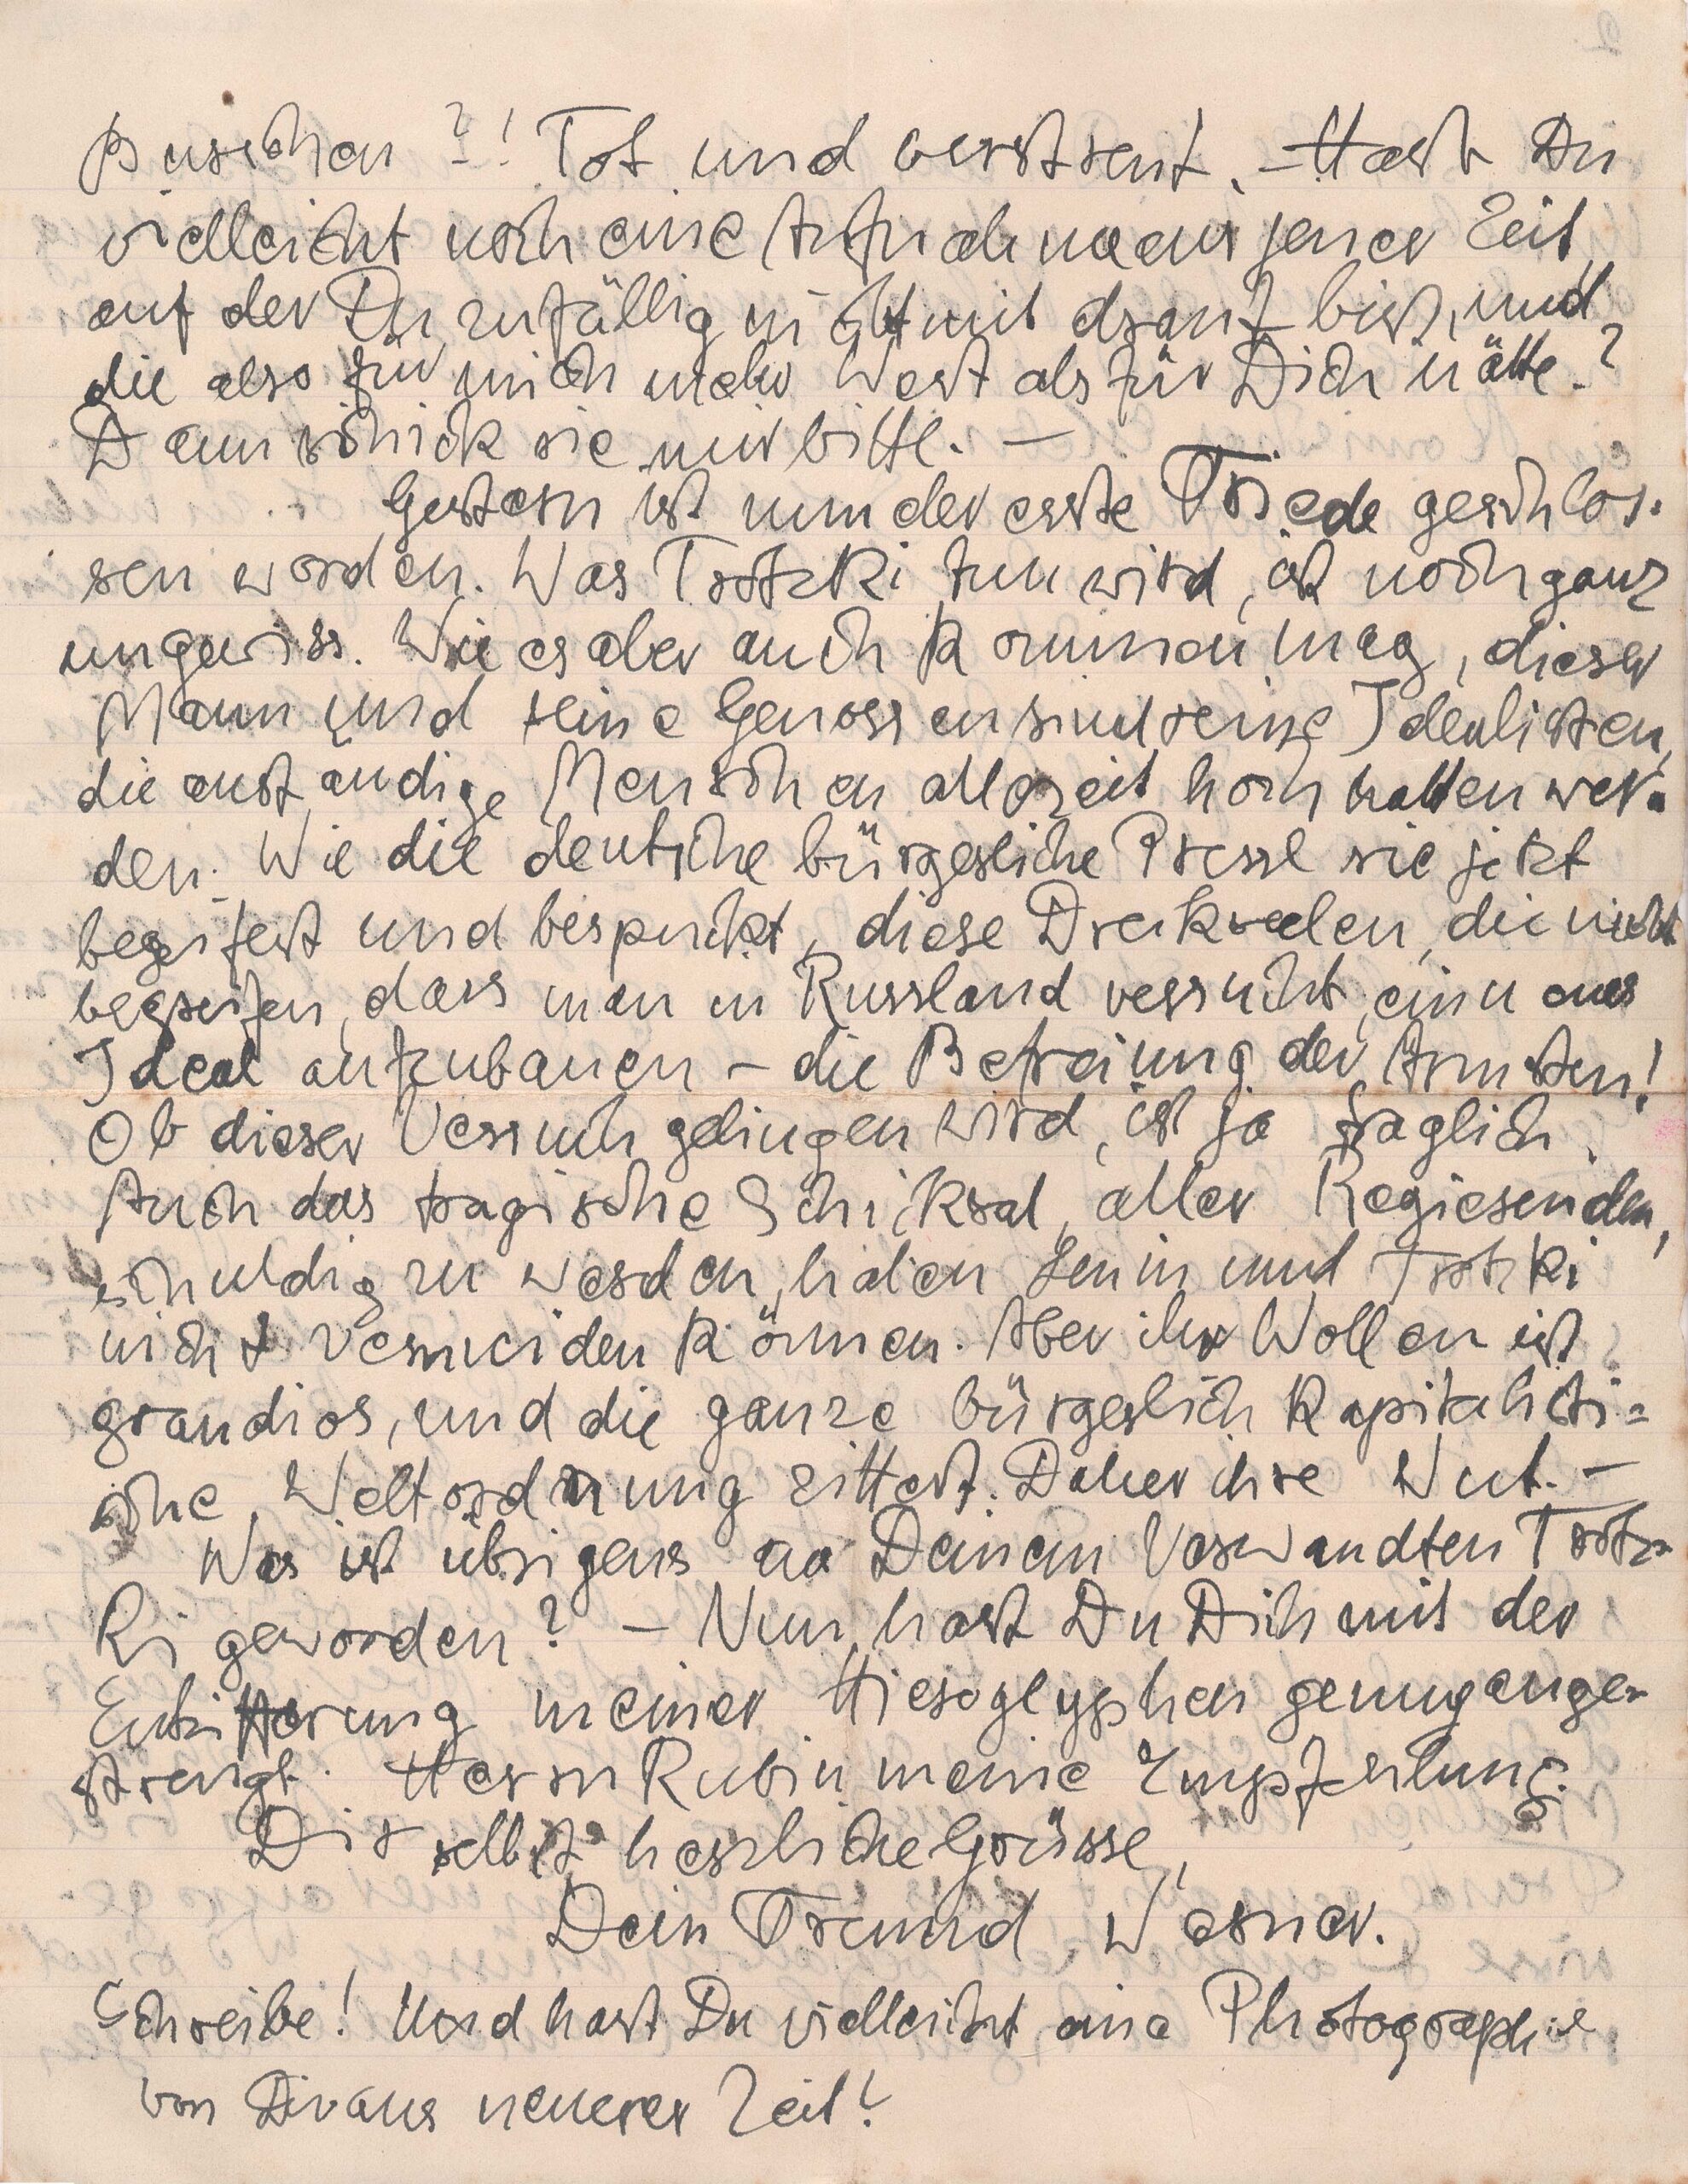 Burschen?! Tot und verstreut. – Hast Du
vielleicht noch eine Aufnahme aus jener Zeit,
auf der Du zufällig nicht mit drauf bist, und
die also für mich mehr Wert als für Dich hätte?
Dann schick sie mir bitte. –
Gestern ist nun der erste Friede geschlos-
sen worden. Was Trotzki tun wird, ist noch ganz
ungewiss. Wie es aber auch kommen mag, dieser
Mann und seine Genossen sind reine Idealisten,
die anständige Menschen allezeit hoch halten wer-
den. Wie die deutsche bürgerliche Presse sie jetzt
begeifert und bespuckt, diese Dreckseelen, die nicht
begreifen, dass man in Russland versucht, ein
Ideal aufzubauen – die Befreiung der Ärmsten!
Ob dieser Versuch gelingen wird, ist ja fraglich.
Auch das tragische Schicksal aller Regierenden,
schuldig zu werden, haben Lenin und Trotzki
nicht vermeiden können. Aber ihr Wollen ist
grandios, und die ganze bürgerlich kapitalisti-
sche Weltordnung zittert. Daher ihre Wut. –
Was ist übrigens aus Deinem Verwandten Trotz-
ki geworden? – Nun hast Du Dich mit der
Entzifferung meiner Hieroglyphen genug ange-
strengt. Herrn Rubin meine Empfehlung.
Dir selbst herzliche Grüsse,
Dein Freund, Werner.
Schreibe! Und hast Du vielleicht eine Photographie
von Dir aus neuerer Zeit?